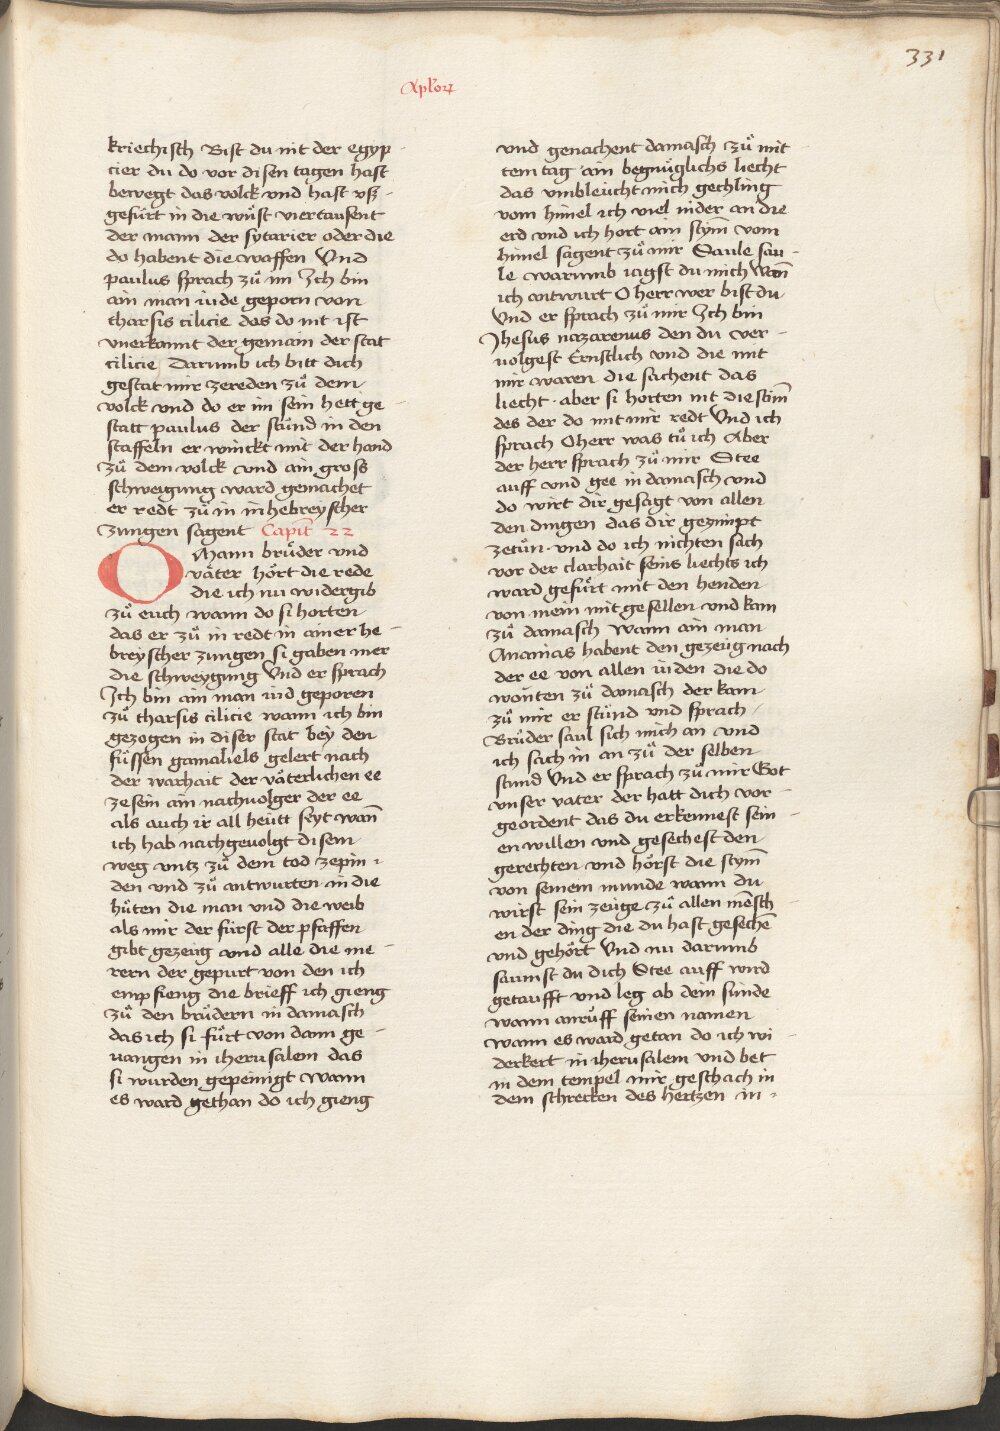 331
Aplo℞
kriechisch Bist du nit der egyp-
cier du do vor disen tagen hast
bewegt das volck und hast vß-
gefuͤrt in die wuͤst viertausent
der mann der sytarier oder die
do habent die waffen Vnd
paulus sprach zuͦ im Ich bin
ain man iude geporn von
tharsis cilicie das do nit ist
vnerkannt der gemain der stat
cilicie Darumb ich bitt dich
gestat mir zereden zuͦ dem
volck vnd do er im sein hett ge-
statt paulus der stuͦnd in den
staffeln er winckt mit der hand
zuͦ dem volck vnd ain gross
schweigung ward gemachet
er redt zuͦ in in hebreyscher
zungen sagent Capitͫ 22
O Mann bruͤder vnd
vaͤter hoͤrt die rede
die ich nu widergib
zuͦ euch wann do si horten
das er zuͦ in redt in ainer he-
breyscher zungen si gaben mer
die schweygung Vnd er sprach
Ich bin ain man iud geporen
zuͦ tharsis cilicie wann ich bin
gezogen in diser stat bey den
fuͤssen gamaliels gelert nach
der warhait der vaͤterlichen ee
ze sein ain nachuolger der ee
als auch ir all heuͤtt seyt wañ
ich hab nachgeuolgt disem
weg vntz zuͦ dem tod zepin-
den vnd zuͦ antwurten in die
huͤten die man vnd die weib
als mir der fuͤrst der pfaffen
gibt gezeug vnd alle die me-
rern der gepurt von den ich
empfieng die brieff ich gieng
zuͦ den bruͤdern in damasch
das ich si fuͤrt von dann ge-
uangen in iherusalem das
si wurden gepeinigt wann
es ward gethan do ich gieng
vnd genachent damasch zuͦ mit
tem tag ain begnuͤglichs liecht
das vmbleucht mich gechling
vom himel ich viel nider an die
erd vnd ich hort ain stym̄ vom
himel sagent zuͦ mir Saule sau-
le warumb iagst du mich Wañ
ich antwurt O herr wer bist du
Vnd er sprach zuͦ mir Ich bin
Jhesus nazarenus den du ver-
uolgest Ernstlich vnd die mit
mir waren die sachent das
liecht · aber si horten nit die stim̄
des der do mit mir redt Vnd ich
sprach O herr was tuͦ ich Aber
der herr sprach zuͦ mir Stee
auff vnd gee in damasch vnd
do wirt dir gesagt von allen
den dingen das dir gezimpt
zetuͦn · vnd do ich nichten sach
vor der clarhait seins liechts ich
ward gefuͤrt mit den henden
von mein mitgesellen vnd kam
zuͦ damasch Wann ain man
Ananias habent den gezeug nach
der ee von allen iuden die do
wonten zuͦ damasch der kam
zuͦ mir er stuͦnd vnd sprach
Bruͦder saul sich mich an vnd
ich sach in an zuͦ der selben
stund Vnd er sprach zuͦ mir Got
vnser vater der hatt dich vor-
geordent das du erkennest sein-
en willen vnd gesechest den
gerechten vnd hoͤrst die stym̄
von seinem munde wann du
wirst sein zeuge zuͦ allen mēsch-
en der ding die du hast gesechē
vnd gehoͤrt Vnd nu darumb
saumst du dich Stee auff wird
getaufft vnd leg ab dein sunde
wann anruͦff seinen namen
wann es ward getan do ich wi-
derkert in iherusalem vnd bet
in dem tempel mir geschach in
dem schrecken des hertzen in-